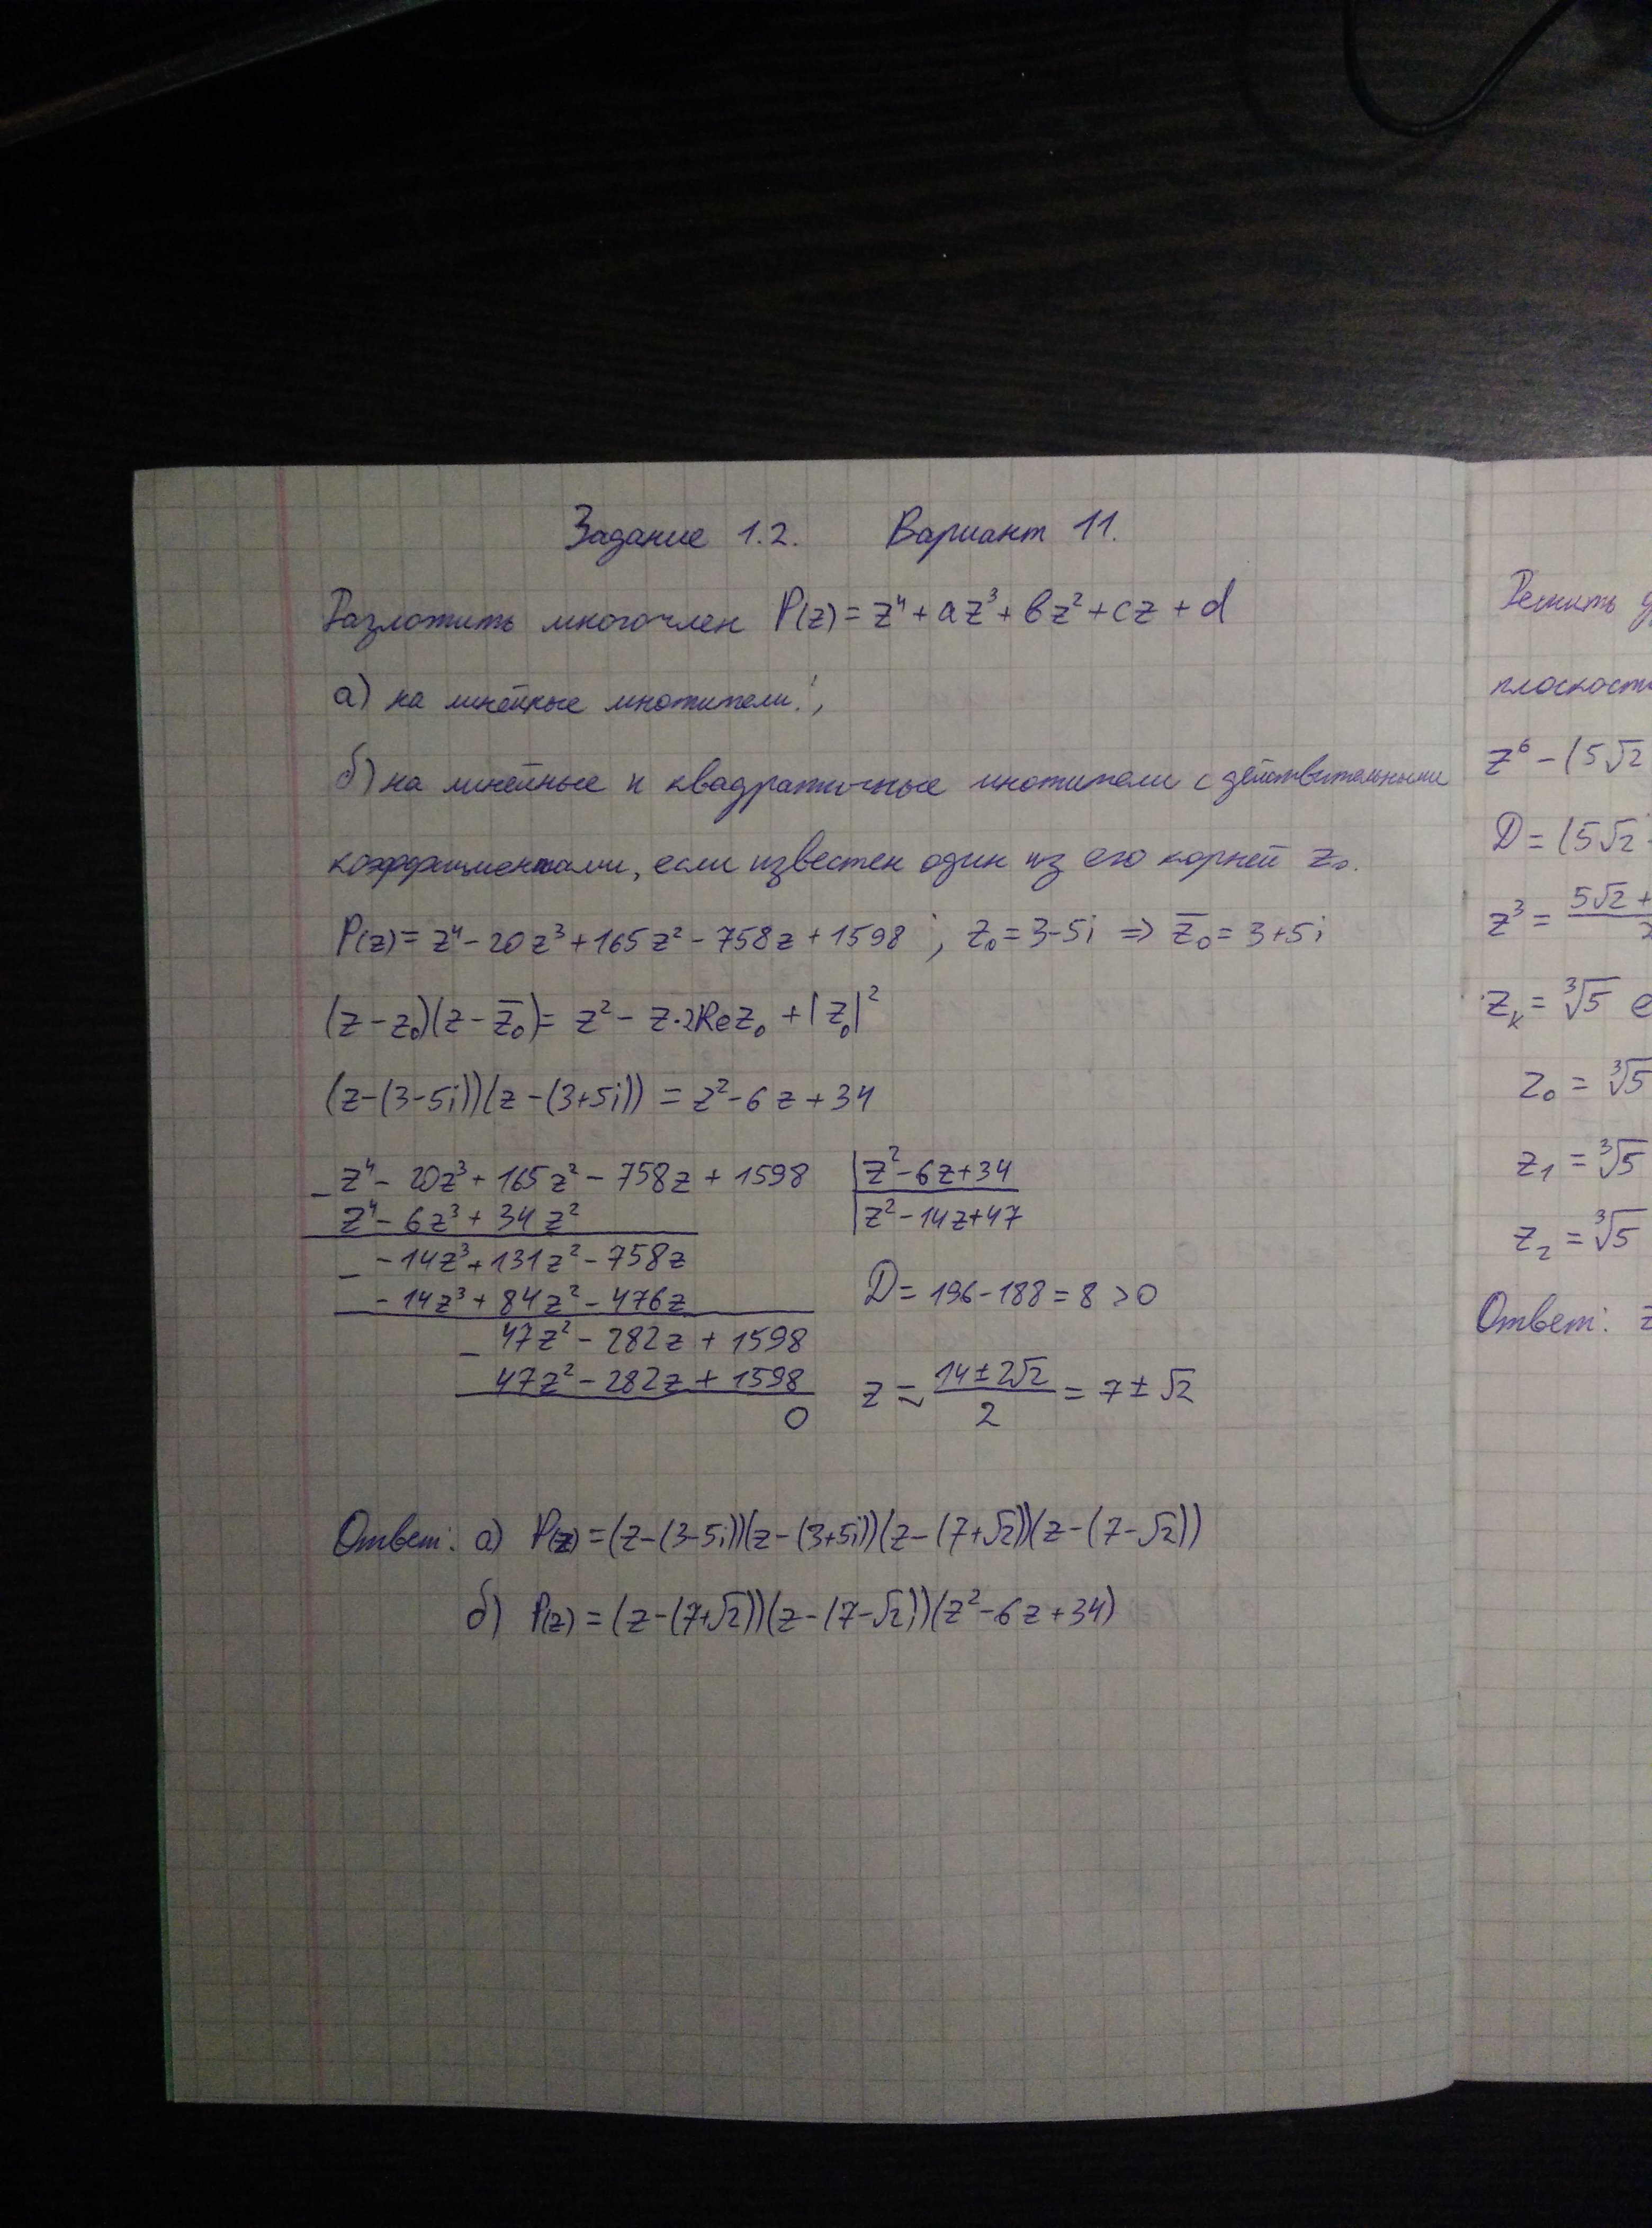 Задание 1.2. Вариант 11.
Разложить многочлен P(z) = z⁴ + az³ + bz² + cz + d
а) на линейные множители;
б) на линейные и квадратичные множители с действительными
коэффициентами, если известен один из его корней z₀.
P(z) = z⁴ - 20z³ + 165z² - 758z + 1598 ; z₀ = 3-5i ⇒ z̅₀ = 3+5i
(z - z₀)(z - z̅₀) = z² - z·2Re z₀ + |z₀|²
(z-(3-5i))(z-(3+5i)) = z² - 6z + 34
z⁴ - 20z³ + 165z² - 758z + 1598 | z² - 6z + 34
z⁴ - 6z³ + 34z² | z² - 14z + 47
-14z³ + 131z² - 758z
-14z³ + 84z² - 476z
47z² - 282z + 1598
47z² - 282z + 1598
0
D = 196 - 188 = 8 > 0
z = (14 ± 2√2)/2 = 7 ± √2
Ответ: а) P(z) = (z-(3-5i))(z-(3+5i))(z-(7+√2))(z-(7-√2))
б) P(z) = (z-(7+√2))(z-(7-√2))(z² - 6z + 34)
Решить
z⁶ - (5√2
D = (5√2
z³ = 5√2 +
z_k = ∛5 e
z₀ = ∛5
z₁ = ∛5
z₂ = ∛5
Ответ: z